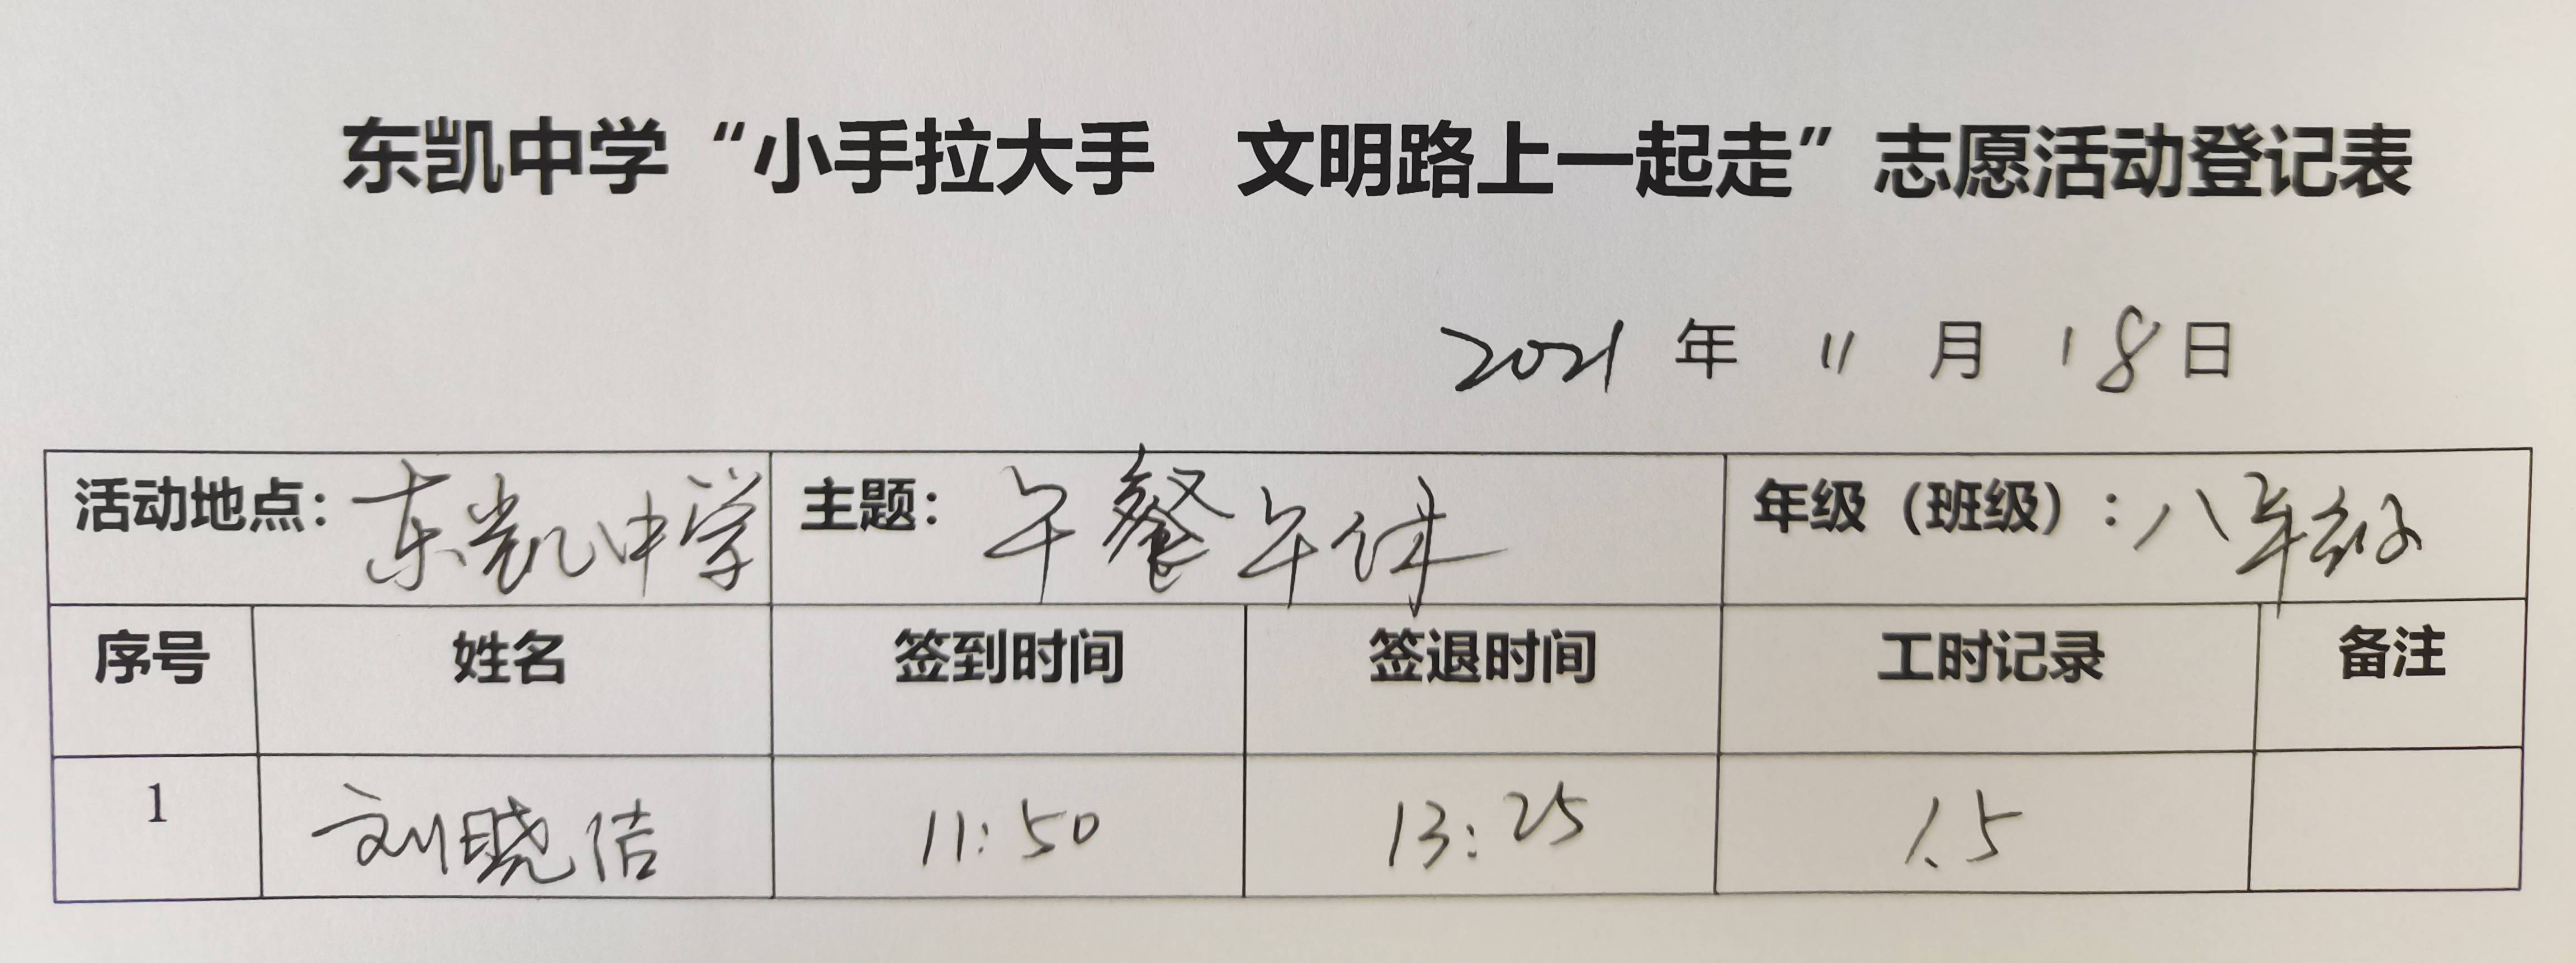 东凯中学“小手拉大手　文明路上一起走”志愿活动登记表
2021 年 11 月 18 日
活动地点：东凯中学 主题：午餐午休 年级（班级）：八年级
序号 姓名 签到时间 签退时间 工时记录 备注
1 刘晓佶 11:50 13:25 1.5